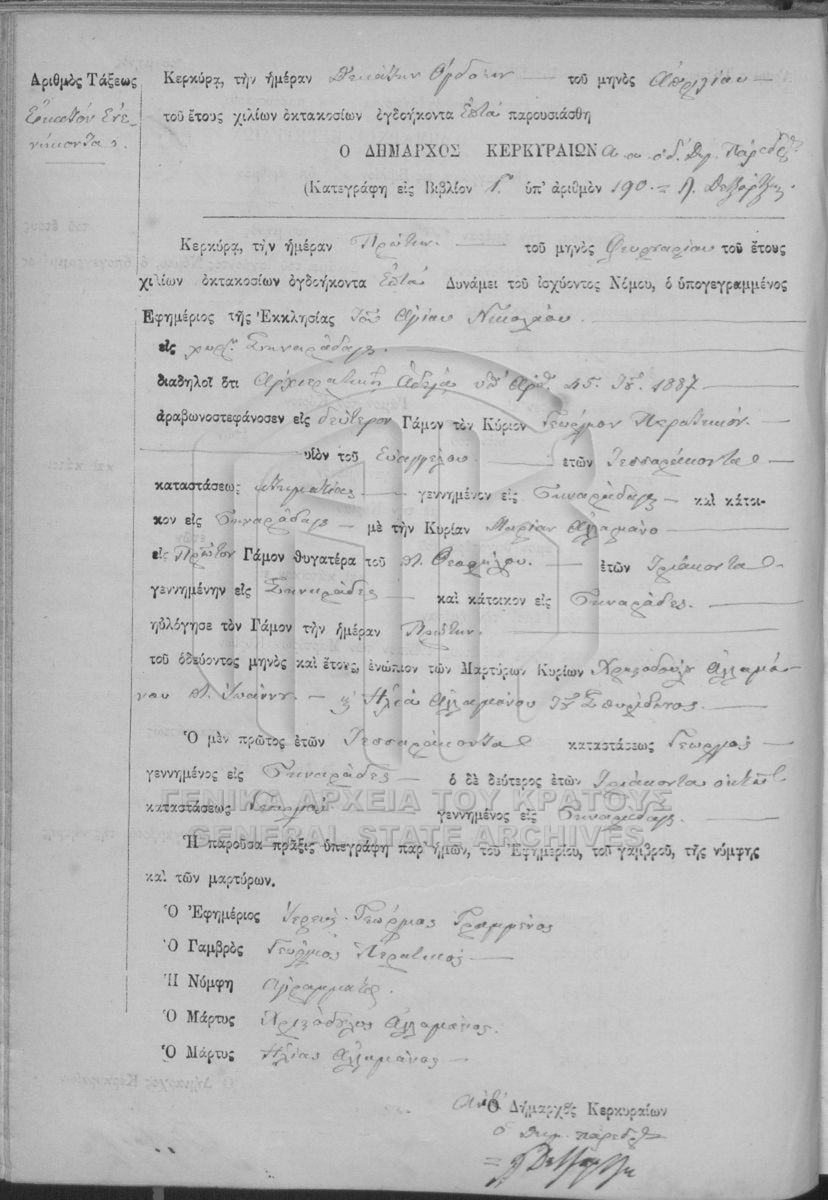 Ἀριθμὸς Τάξεως
Ἑκατὸν Ἐνε-
νήκοντα
Κερκύρᾳ, τὴν ἡμέραν Δεκάτην Ὀγδόην τοῦ μηνὸς Ἀπριλίου
τοῦ ἔτους χιλίων ὀκτακοσίων ὀγδοήκοντα Ἑπτὰ παρουσιάσθη
Ο ΔΗΜΑΡΧΟΣ ΚΕΡΚΥΡΑΙΩΝ
(Κατεγράφη εἰς Βιβλίον Γ. ὑπ' ἀριθμὸν 190
Κερκύρᾳ, τὴν ἡμέραν Πρώτην τοῦ μηνὸς Φευρουαρίου τοῦ ἔτους
χιλίων ὀκτακοσίων ὀγδοήκοντα Ἑπτὰ Δυνάμει τοῦ ἰσχύοντος Νόμου, ὁ ὑπογεγραμμένος
Ἐφημέριος τῆς Ἐκκλησίας τοῦ Ἁγίου Νικολάου
εἰς χωρ. Σιναράδας
διαδηλοῖ ὅτι Ἀρχιερατικῇ Ἀδείᾳ ὑπ' Ἀρθ. 45. 1887
ἀραβωνοστεφάνοσεν εἰς δεύτερον Γάμον τὸν Κύριον Γεώργιον Περατικόν
υἱὸν τοῦ Εὐαγγέλου ἐτῶν Τεσσαράκοντα
καταστάσεως κτηματίας γεννημένον εἰς Σιναράδας καὶ κάτοι-
κον εἰς Σιναράδας μὲ τὴν Κυρίαν Μαρίαν Ἀλαμάνο
εἰς Πρῶτον Γάμον θυγατέρα τοῦ Θεοφίλου. ἐτῶν Τριάκοντα
γεννημένην εἰς Σιναράδες καὶ κάτοικον εἰς Σιναράδες.
ηὐλόγησε τὸν Γάμον τὴν ἡμέραν Πρώτην.
τοῦ ὁδεύοντος μηνὸς καὶ ἔτους, ἐνώπιον τῶν Μαρτύρων Κυρίων Χριστοδούλου Ἀλλαμά-
νου Ἰωάννου Ἠλία Ἀλλαμάνου τοῦ Σπυρίδωνος
Ὁ μὲν πρῶτος ἐτῶν Τεσσαράκοντα καταστάσεως Γεωργὸς
γεννημένος εἰς Σιναράδες ὁ δὲ δεύτερος ἐτῶν Τριάκοντα ὀκτὼ
καταστάσεως Γεωργὸς γεννημένος εἰς Σιναράδας
ΓΕΝΙΚΑ ΑΡΧΕΙΑ ΤΟΥ ΚΡΑΤΟΥΣ
GENERAL STATE ARCHIVES
Ἡ παροῦσα πρᾶξις ὑπεγράφη παρ' ἡμῶν, τοῦ Ἐφημερίου, τοῦ γαμβροῦ, τῆς νύμφης
καὶ τῶν μαρτύρων.
Ὁ Ἐφημέριος Ἱερεὺς Γεώργιος Γραμμένος
Ὁ Γαμβρὸς Γεώργιος Περατικὸς
Ἡ Νύμφη Ἀγράμματος.
Ὁ Μάρτυς Χριστόδουλος Ἀλλαμάνος.
Ὁ Μάρτυς Ἠλίας Ἀλλαμάνος
Ὁ Δήμαρχος Κερκυραίων
ὁ Δημ. πάρεδρος